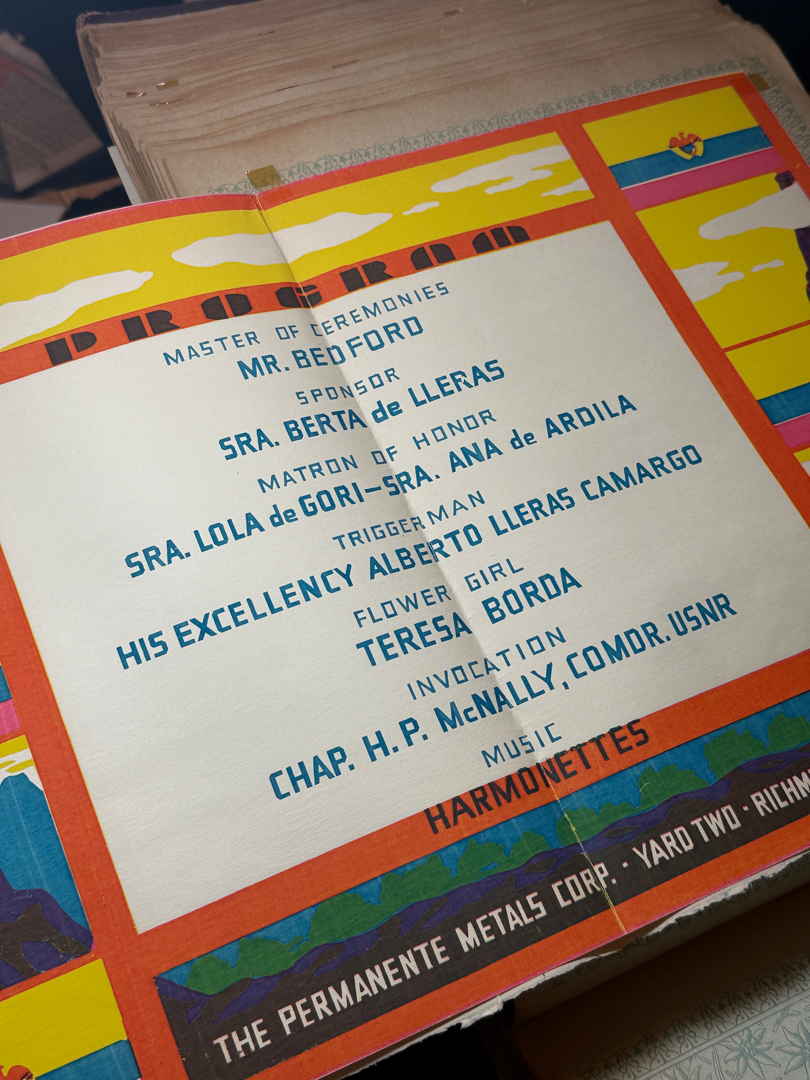 PROGRAM
MASTER OF CEREMONIES
MR. BEDFORD
SPONSOR
SRA. BERTA de LLERAS
MATRON OF HONOR
SRA. LOLA de GORI—SRA. ANA de ARDILA
TRIGGERMAN
HIS EXCELLENCY ALBERTO LLERAS CAMARGO
FLOWER GIRL
TERESA BORDA
INVOCATION
CHAP. H. P. McNALLY, COMDR. USNR
MUSIC
HARMONETTES
THE PERMANENTE METALS CORP. · YARD TWO · RICHM